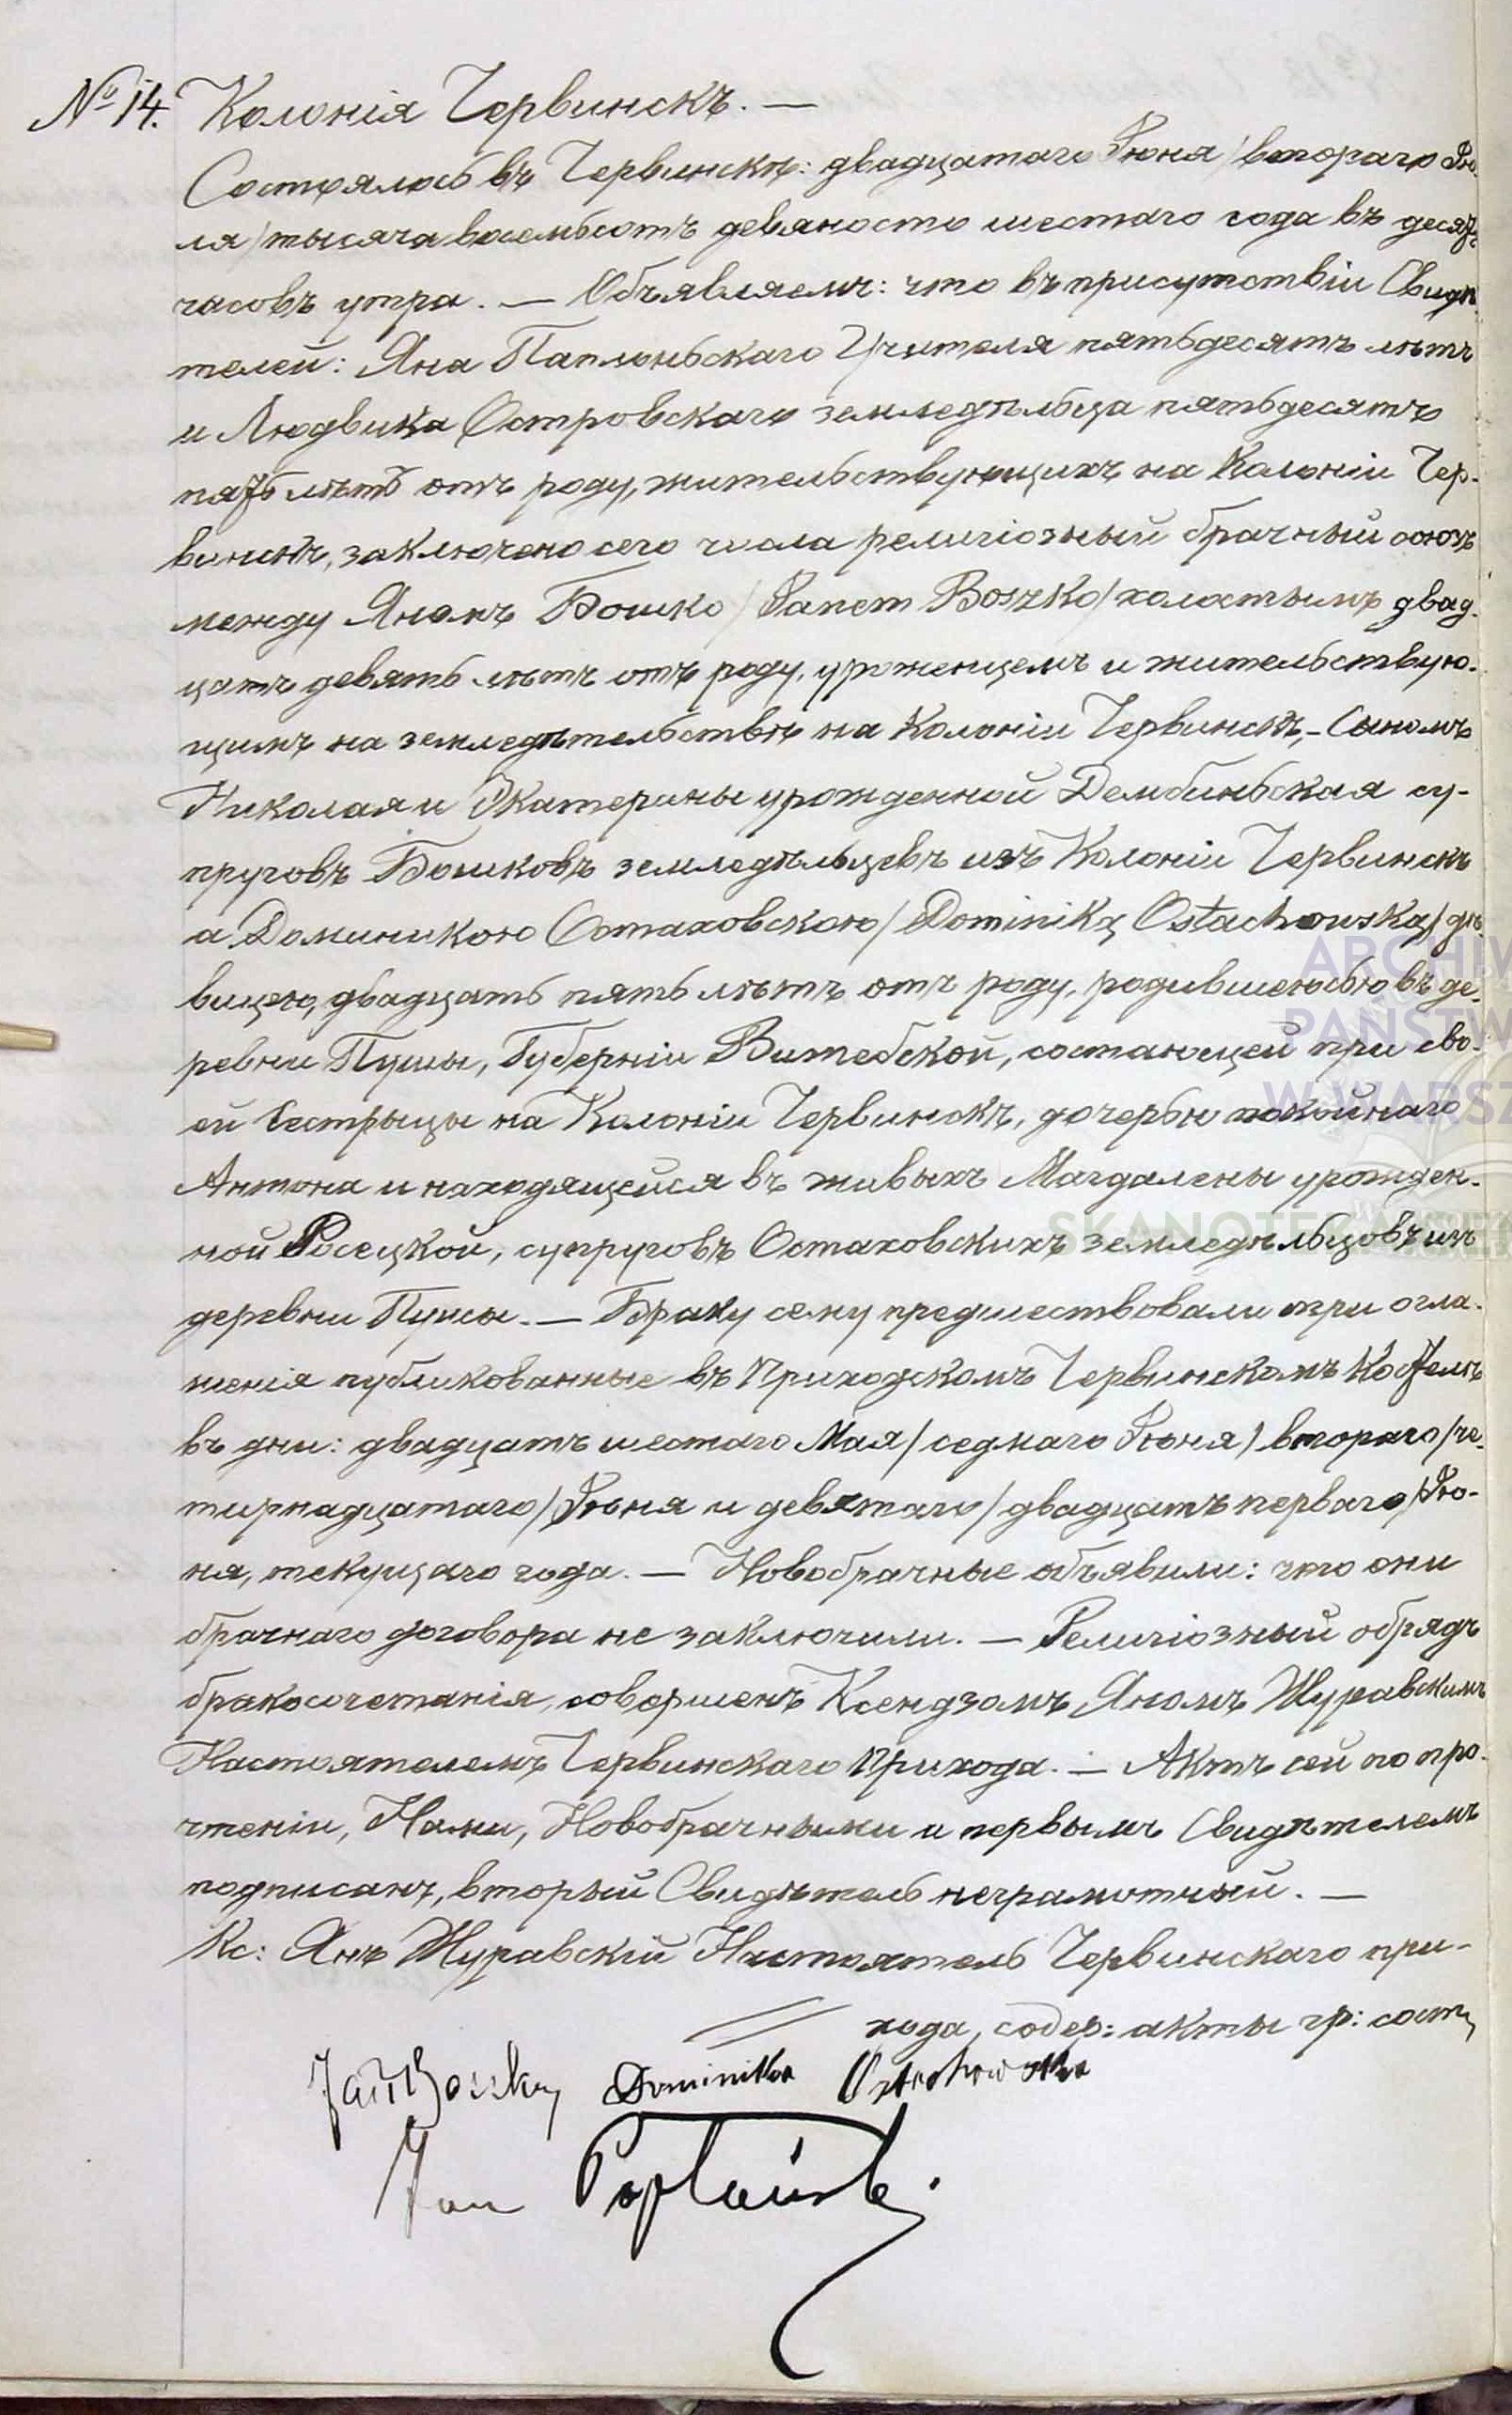 № 14. Колонія Червинскъ. —
Состоялось въ Червинскѣ: двадцатаго Іюня /втораго Ію-
ля/ тысяча восемьсотъ девяносто шестаго года въ десять
часовъ утра. — Объявляемъ: что въ присутствіи Свидѣ-
телей: Яна Учителя пятьдесятъ лѣтъ
и Людвика Островскаго земледѣльца пятьдесятъ
пять лѣтъ отъ роду, жительствующихъ на Колоніи Чер-
винскъ, заключено сего числа религіозный брачный союзъ
между Яномъ Бошко /Janem Boszko/ холостымъ двад-
цать девять лѣтъ отъ роду, уроженцемъ и жительствую-
щимъ на земледѣтельствѣ на Колоніи Червинскъ, - Сыномъ
Николая и Екатерины урожденной Дембиньская су-
пруговъ Бошковъ земледѣльцевъ изъ Колоніи Червинскъ
а Доминикою Остаховскою /Dominiką Ostachowską/ дѣ-
вицею, двадцать пять лѣтъ отъ роду, родившеюсью въ де-
ревни Пушы, Губерніи Витебской, состающей при сво-
ей Сестрыцы на Колоніи Червинскъ, дочерью покойнаго
Антона и находящейся въ живыхъ Магдалены урожден-
ной Росецкой, супруговъ Остаховскихъ земледѣльцовъ изъ
деревни Пушы. — Браку сему предшествовали три огла-
шенія публикованные въ Приходскомъ Червинскомъ Костелѣ
въ дни: двадцать шестаго Мая /седмаго Іюня/ втораго /че-
тирнадцатаго/ Іюня и девятаго /двадцать перваго/ Ію-
ня, текущаго года. — Новобрачные объявили: что они
брачнаго договора не заключили. — Религіозный обрядъ
бракосочетанія, совершенъ Ксендзомъ Яномъ Журавскимъ
Настоятелемъ Червинскаго Прихода. — Актъ сей по про-
чтеніи, Нами, Новобрачными и первымъ Свидѣтелемъ
подписанъ, вторый Свидѣтель неграмотный. —
Кс: Янъ Журавскій Настоятель Червинскаго при-
хода, содер: акты гр: сост,
Jan Dominika Ostachowska
Jan